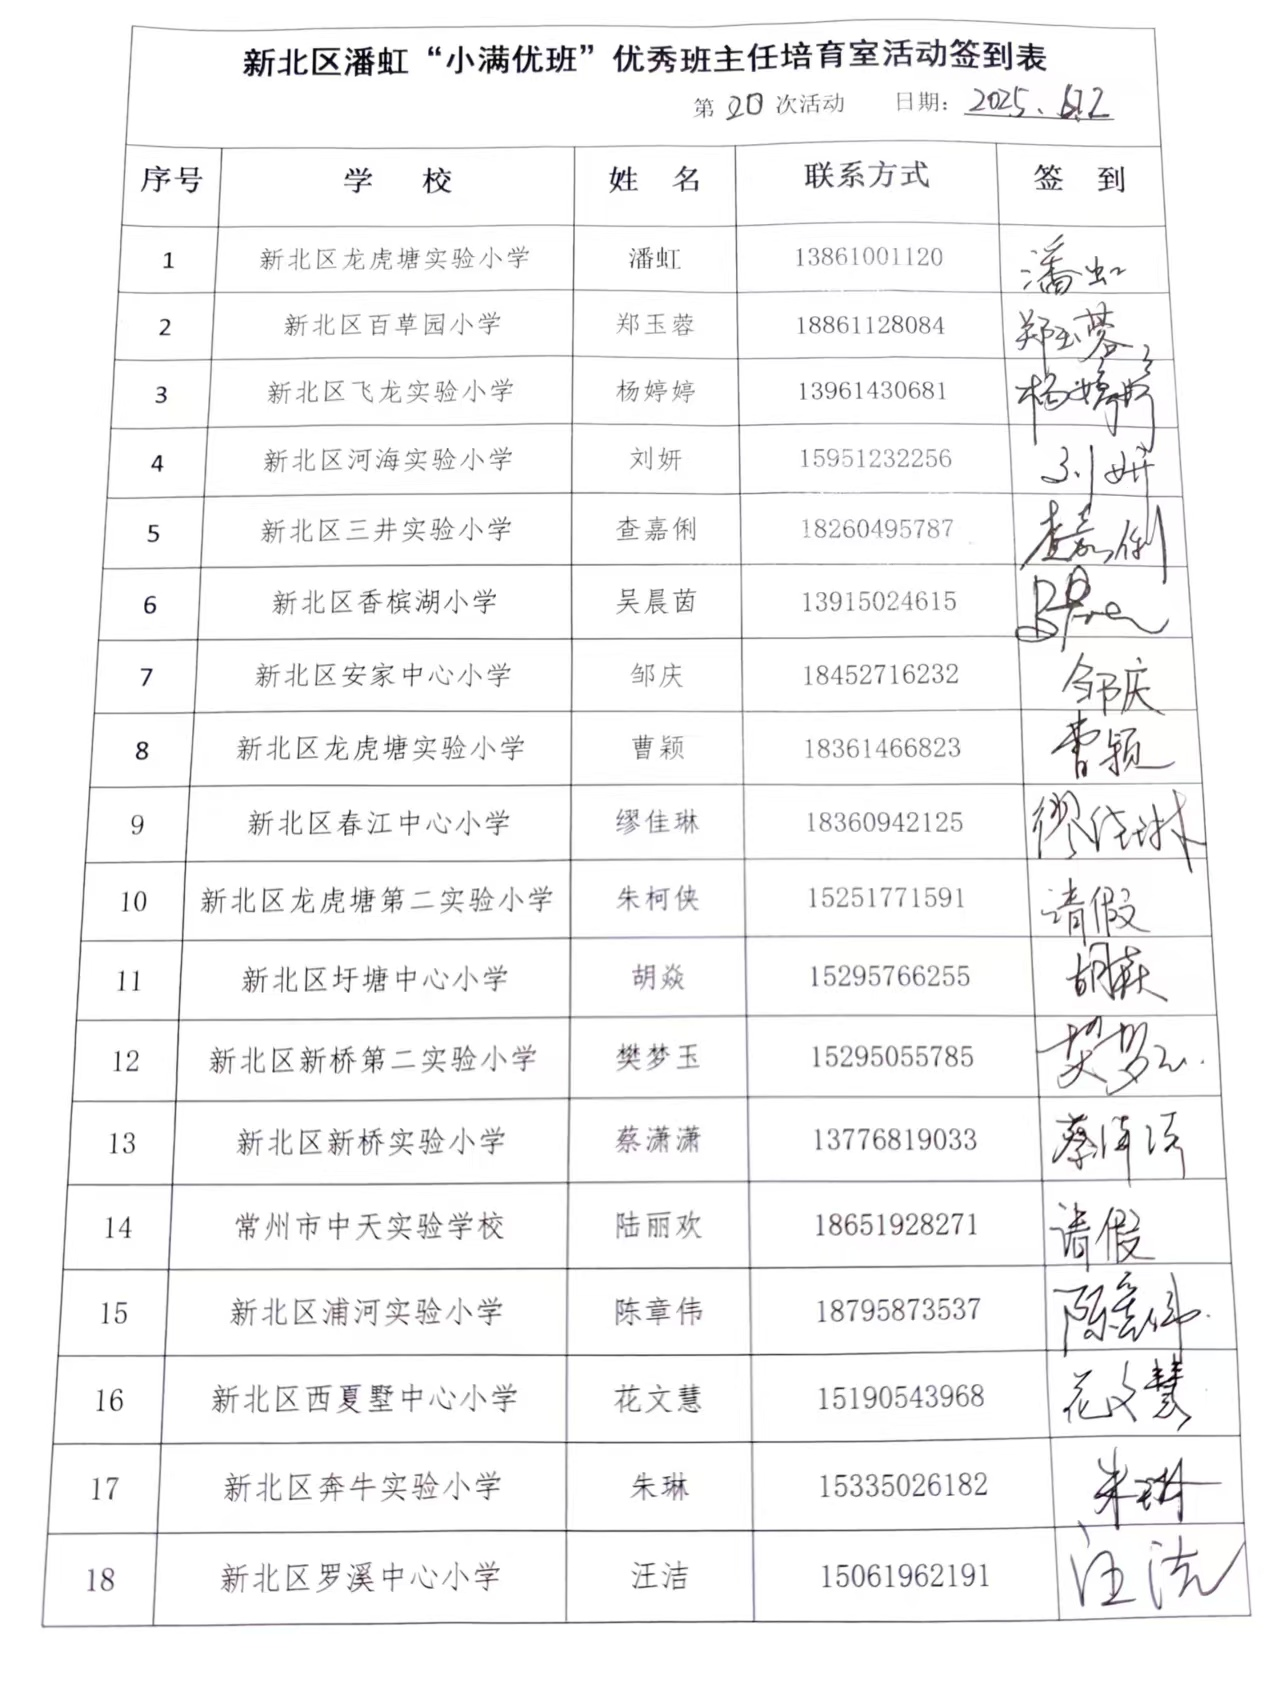 新北区潘虹“小满优班”优秀班主任培育室活动签到表
第 20 次活动 日期： 2025.
序号 学 校 姓 名 联系方式 签 到
1 新北区龙虎塘实验小学 潘虹 13861001120 潘虹
2 新北区百草园小学 郑玉蓉 18861128084 郑玉蓉
3 新北区飞龙实验小学 杨婷婷 13961430681 杨婷婷
4 新北区河海实验小学 刘妍 15951232256 刘妍
5 新北区三井实验小学 查嘉俐 18260495787 查嘉俐
6 新北区香槟湖小学 吴晨茵 13915024615
7 新北区安家中心小学 邹庆 18452716232 邹庆
8 新北区龙虎塘实验小学 曹颖 18361466823 曹颖
9 新北区春江中心小学 缪佳琳 18360942125 缪佳琳
10 新北区龙虎塘第二实验小学 朱柯侠 15251771591 请假
11 新北区圩塘中心小学 胡焱 15295766255 胡焱
12 新北区新桥第二实验小学 樊梦玉 15295055785 樊梦玉
13 新北区新桥实验小学 蔡潇潇 13776819033 蔡潇潇
14 常州市中天实验学校 陆丽欢 18651928271 请假
15 新北区浦河实验小学 陈章伟 18795873537 陈章伟
16 新北区西夏墅中心小学 花文慧 15190543968 花文慧
17 新北区奔牛实验小学 朱琳 15335026182 朱琳
18 新北区罗溪中心小学 汪洁 15061962191 汪洁